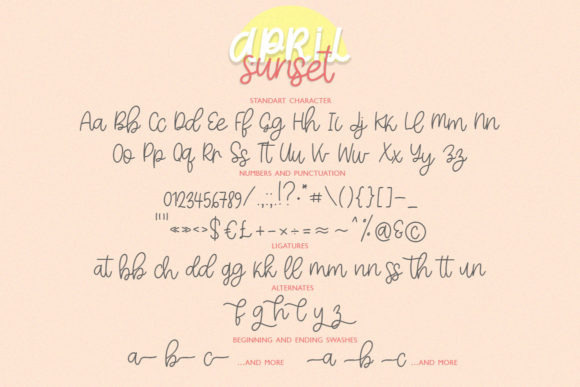 april
sunset
STANDART CHARACTER
Aa Bb Cc Dd Ee Ff Gg Hh Ii Jj Kk Ll Mm Nn
Oo Pp Qq Rr Ss Tt Uu Vv Ww Xx Yy Zz
NUMBERS AND PUNCTUATION
0123456789/.,:;..!?·*#\(){}[]-_
''""«»<>$€£+-×÷=≈~^%@&©
LIGATURES
at bb ch dd gg kk ll mm nn ss th tt un
ALTERNATES
f g h l y z
BEGINNING AND ENDING SWASHES
a b c ...AND MORE a b c ...AND MORE